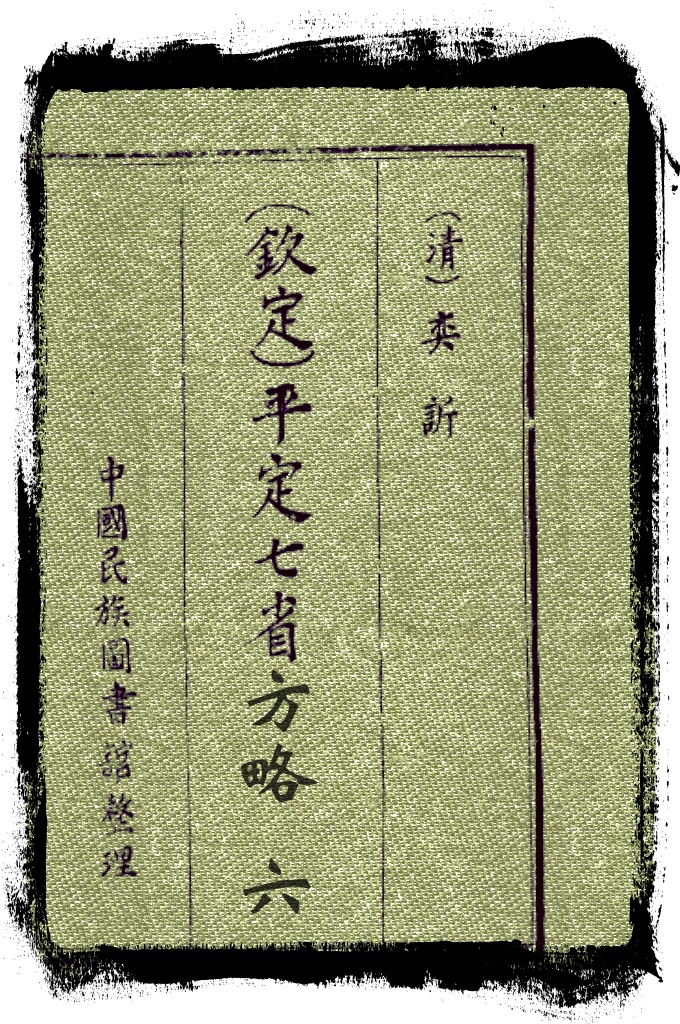 （清）奕訢
（欽定）平定七省方略 六
中國民族圖書館整理